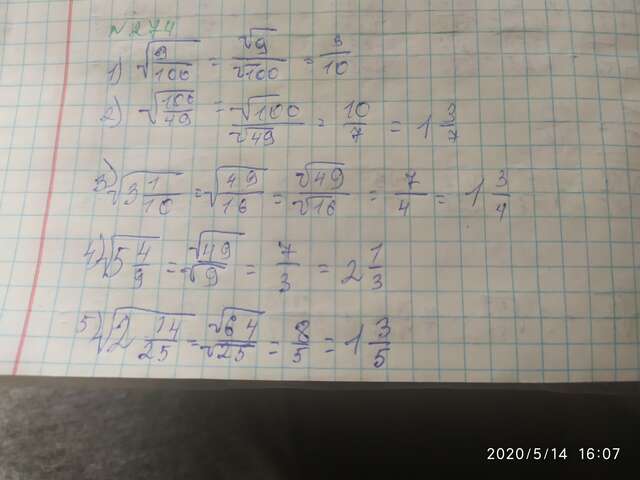 №274
1) √(9/100) = √9/√100 = 3/10
2) √(100/49) = √100/√49 = 10/7 = 1 3/7
3) √(3 1/10) = √(49/16) = √49/√16 = 7/4 = 1 3/4
4) √(5 4/9) = √49/√9 = 7/3 = 2 1/3
5) √(2 14/25) = √64/√25 = 8/5 = 1 3/5
2020/5/14 16:07